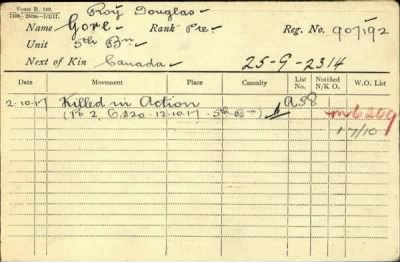 Form R. 149.
Roy Douglas
Name Gore Rank Pte. Reg. No. 907192
Unit 5th Bn
Next of Kin Canada 25-9-2314
Date Movement Place Casualty List No. Notified N/K O. W.O. List
2.10.17 Killed in Action A38 m6269
(Pt 2, 6220 - 12.10.17 - 5th Bn) 17/10